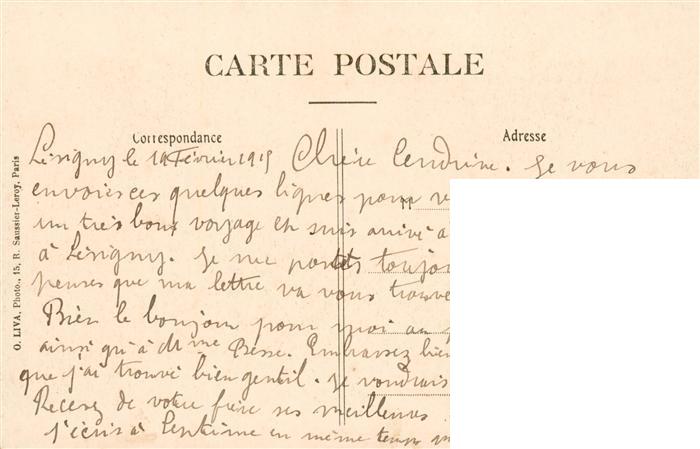 CARTE POSTALE
Correspondance
Adresse
O. LIVA, Photo., 15, R. Saussier-Leroy, Paris
Lésigny le 19 Février 1915 Chère . Je vous
envoie ces quelques lignes pour
un très bon voyage et suis arrivé à
à Lésigny. Je me portes
que ma lettre va vous
Bien le bonjour pour moi au
ainsi qu'à Mme Besse. Embrassez bien
que j'ai trouvé bien gentil. Je voudrais
Recevez de votre frère ses meilleures
j'écris à en même temps